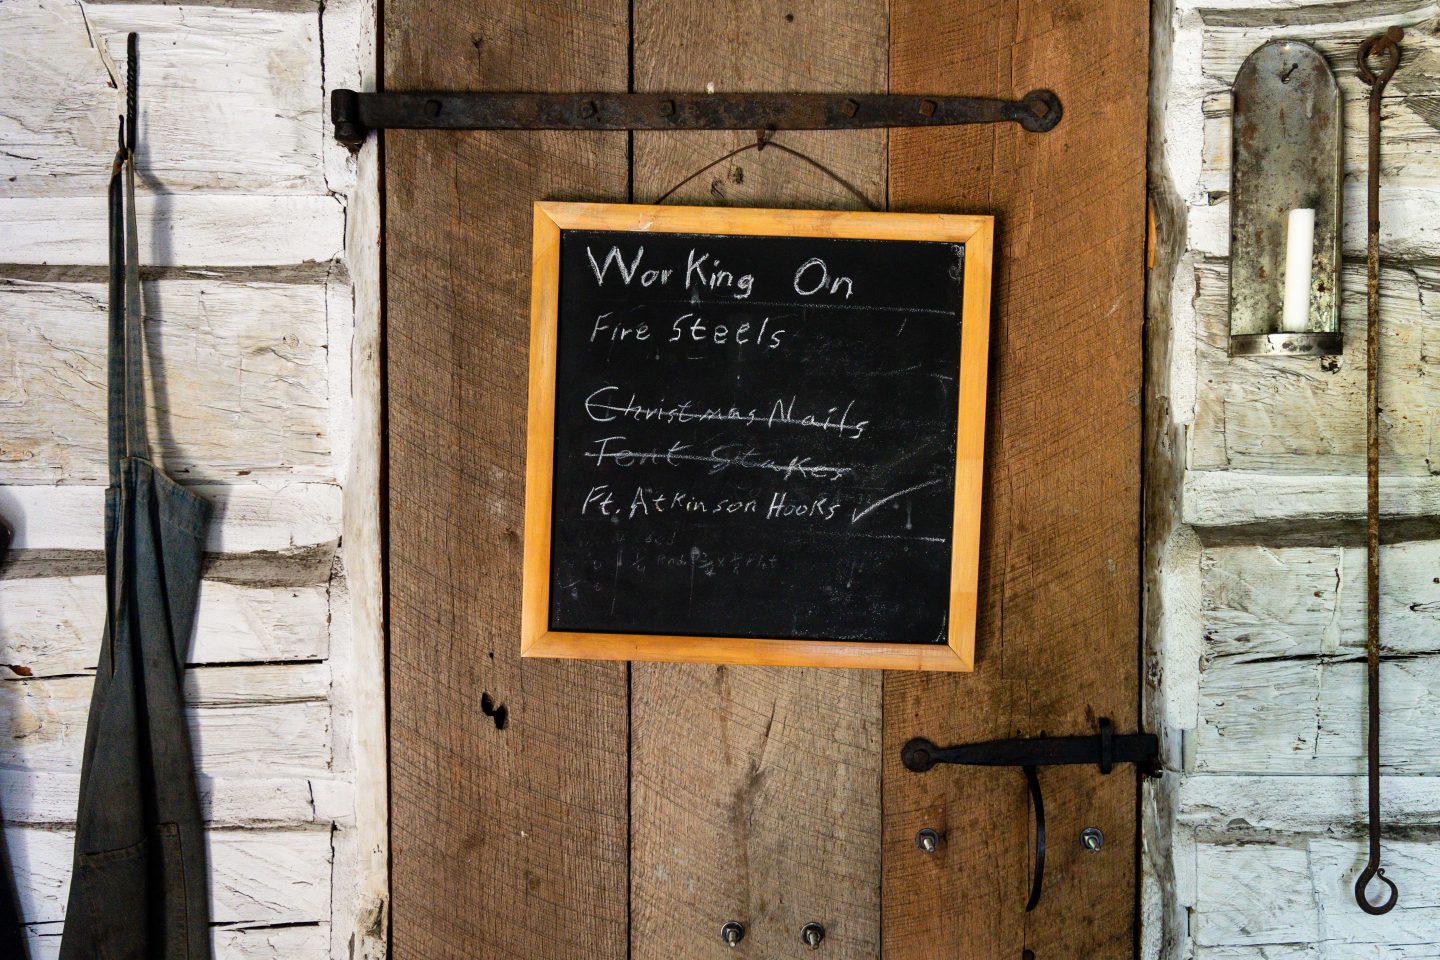 Working On
Fire Steels
Christmas Nails
Tent Stakes
Ft. Atkinson Hooks ✓